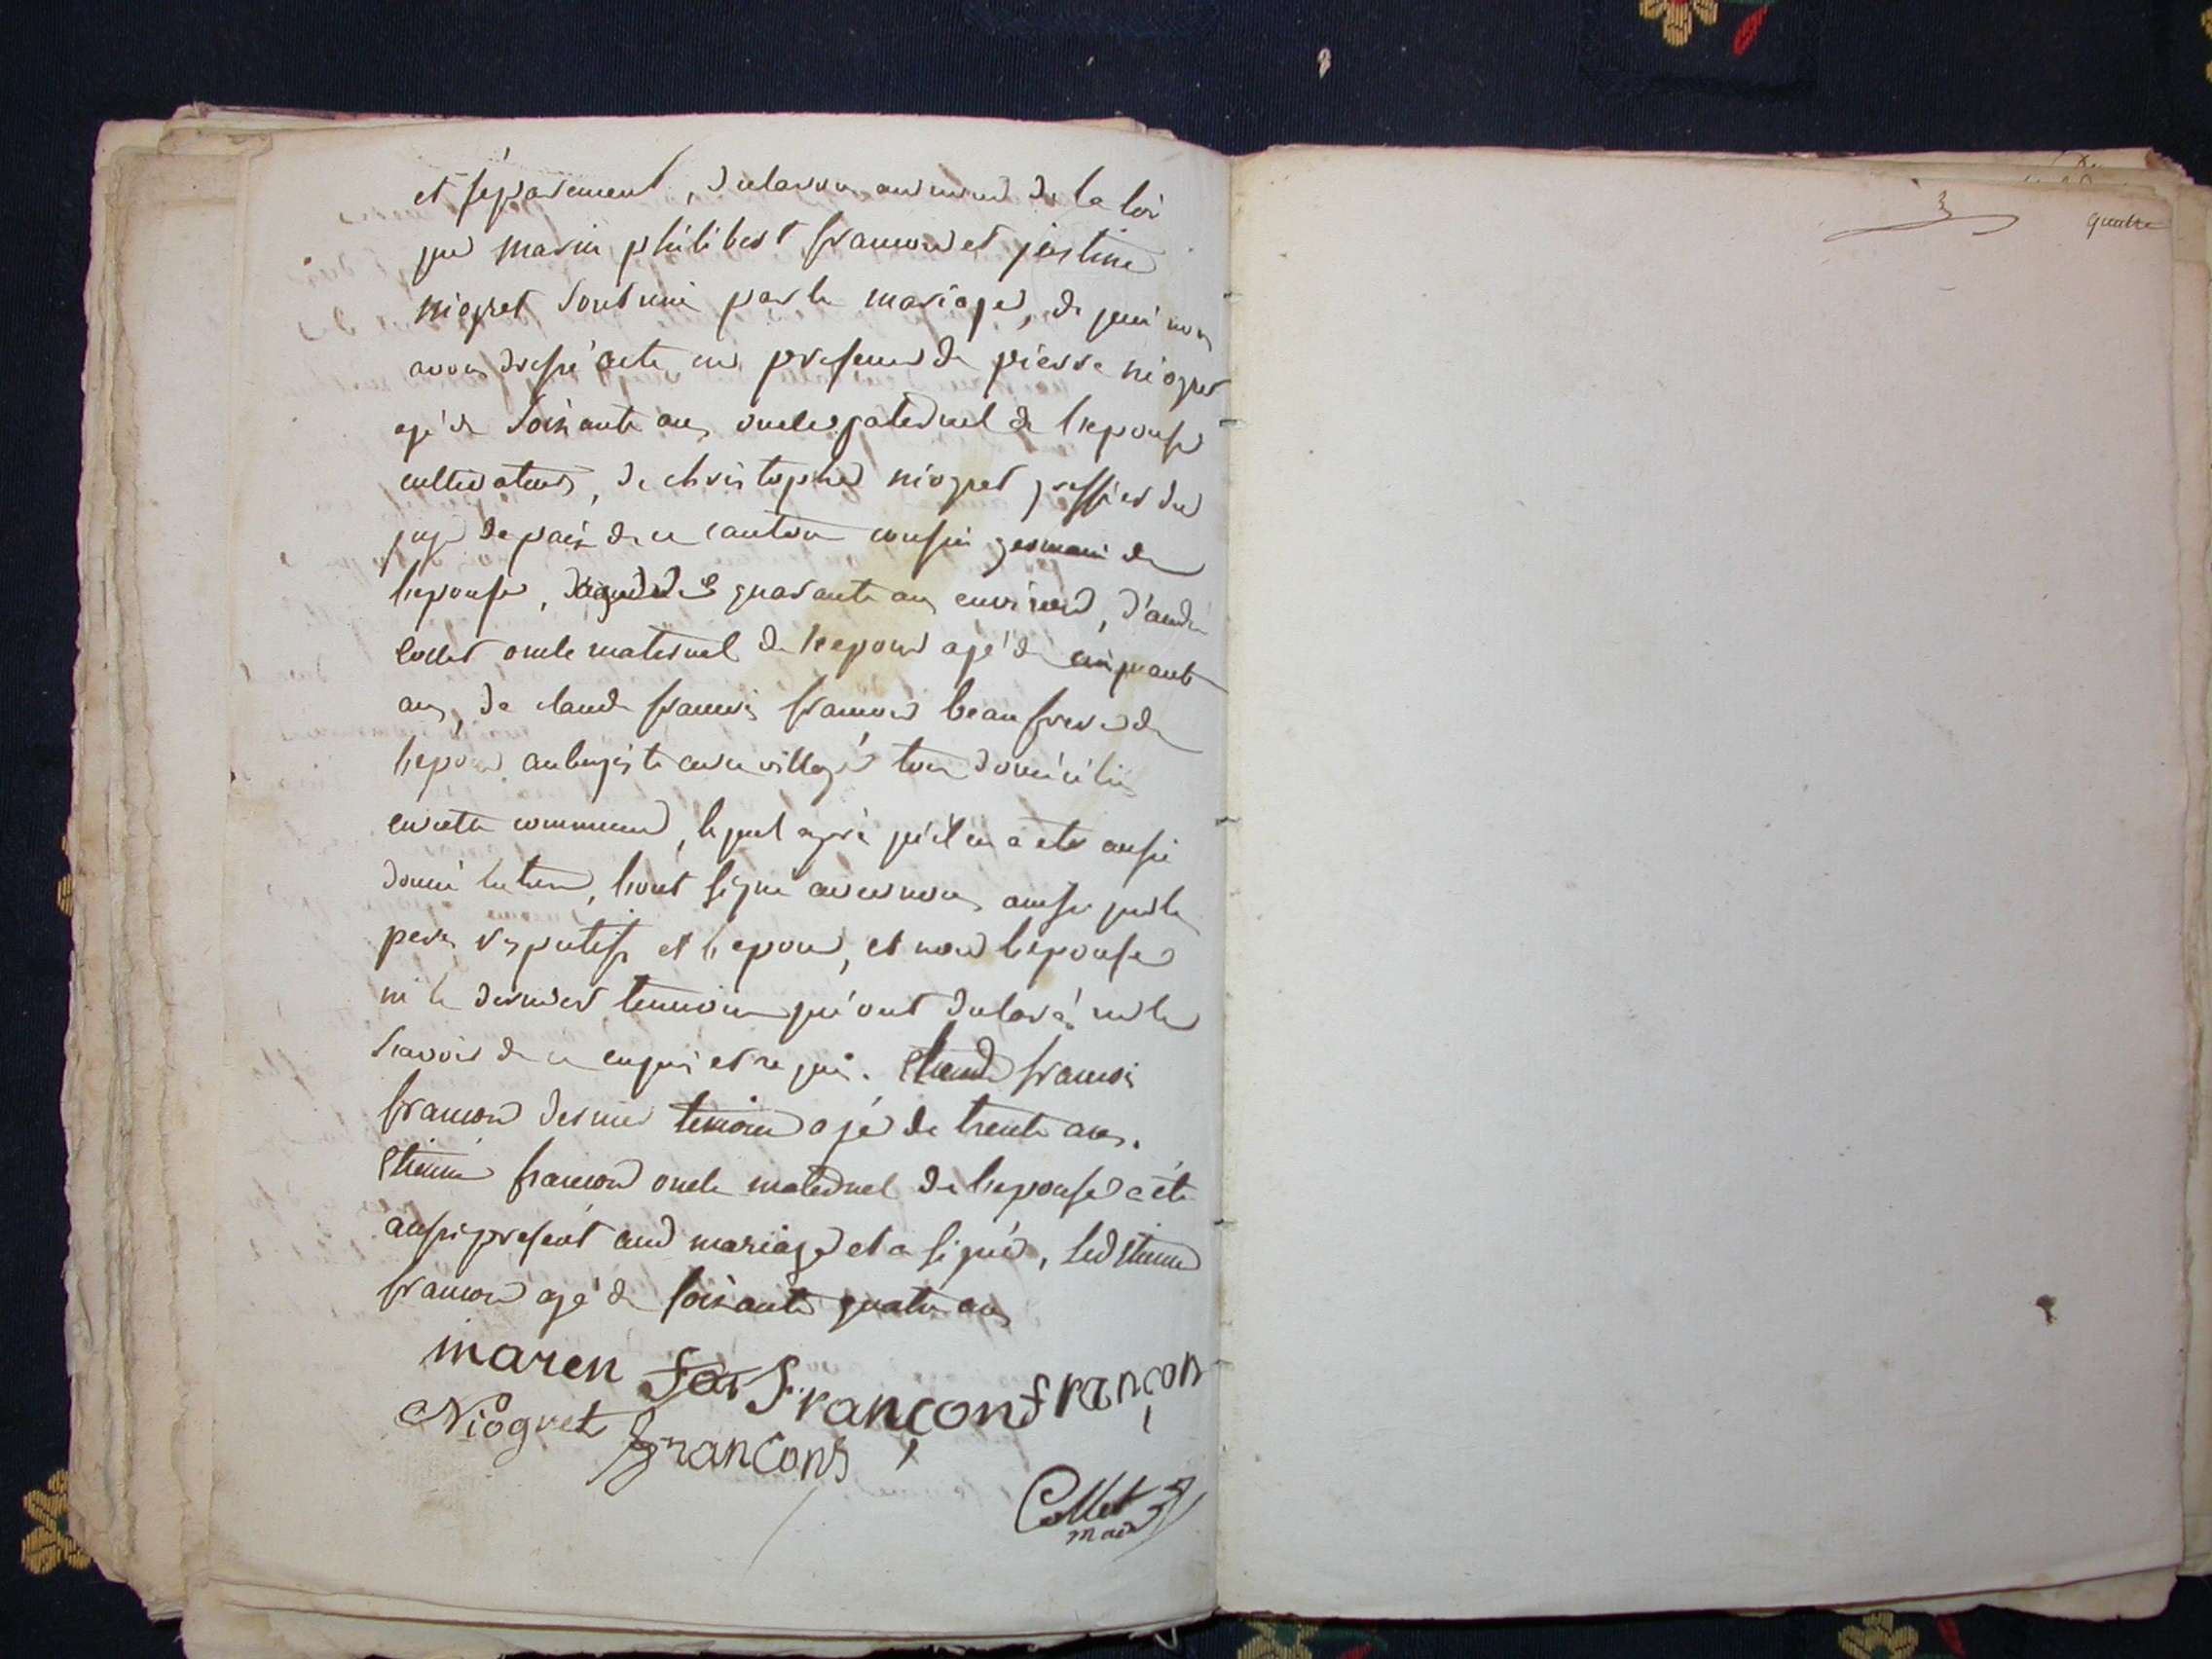 et séparément, declarons au nom de la loi
que marin philibert françon et justine
niogret sont unis par le mariage, de quoi nous
avons dressé acte en presence de pierre niogret
agé de soixante ans oncle paternel de l'epouse
cultivateur, de christophe niogret greffier du
juge de paix de ce canton cousin germain de
l'epouse, agé de quarante ans environ, d'andré
collet oncle maternel de l'epoux agé de cinquante
ans, de claude françois françon beau frere de
l'epoux aubergiste en ce village tous domiciliés
en cette commune, lequel après qu'il en a été aussi
donné lecture, l'ont signé avec nous, ainsi que les
peres respectifs et l'epoux, et non l'epouse
ni le dernier temoin qui ont declaré ne le
scavoir de ce enquis et requis. Claude françois
françon dernier temoin agé de trente ans.
Etienne françon oncle maternel de l'epouse a été
aussi present aud mariage et a signé, led Etienne
françon agé de soixante quatre ans
maren françon françon
Niogret francons
Collet
maire